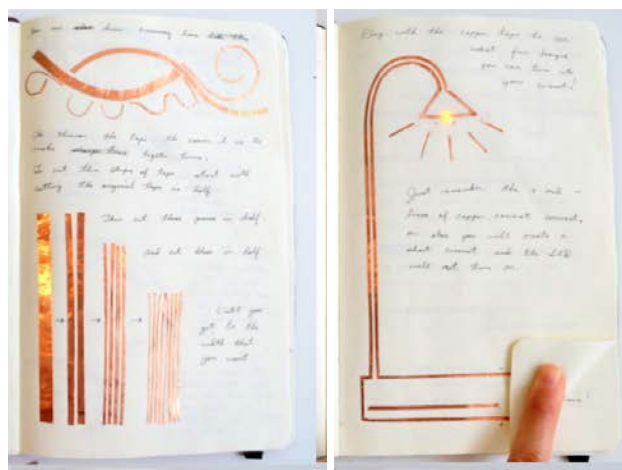 You can also have curving lines
The thinner the tape, the easier it is to
make tight turns.
To cut thin strips of tape start with
cutting the original tape in half.
Then cut those pieces in half.
and cut those in half
Until you
get to the
width that
you want
Play with the copper tape to see
what fun designs
you can turn into
your circuit!
Just remember the + and -
lines of copper cannot connect,
or else you will create a
short circuit and the LED
will not turn on.